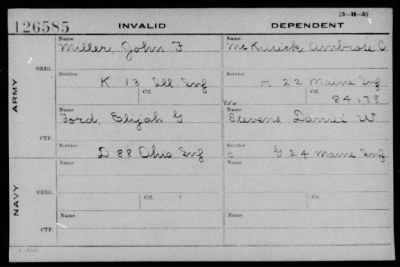 (3-16-5)
126585 INVALID DEPENDENT
Name Name
Miller, John F McKusick Ambrose C
ORIG.
Service Service
K 13 Ill Inf H 22 Maine Inf
Ctf. Ctf.
m 84178
ARMY
Name Name
Ford, Elijah G Stevens Daniel W
CTF.
Service Service
D 88 Ohio Inf C G 24 Maine Inf
Name Name
ORIG.
Ctf. Ctf.
NAVY
Name Name
CTF.